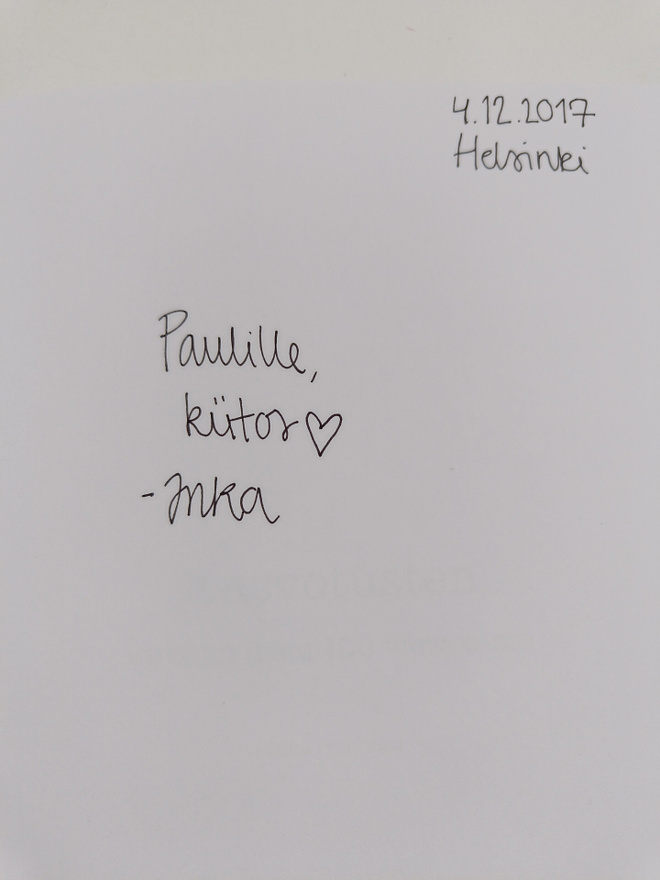 4.12.2017
Helsinki
Paulille,
kiitos♡
-Inka